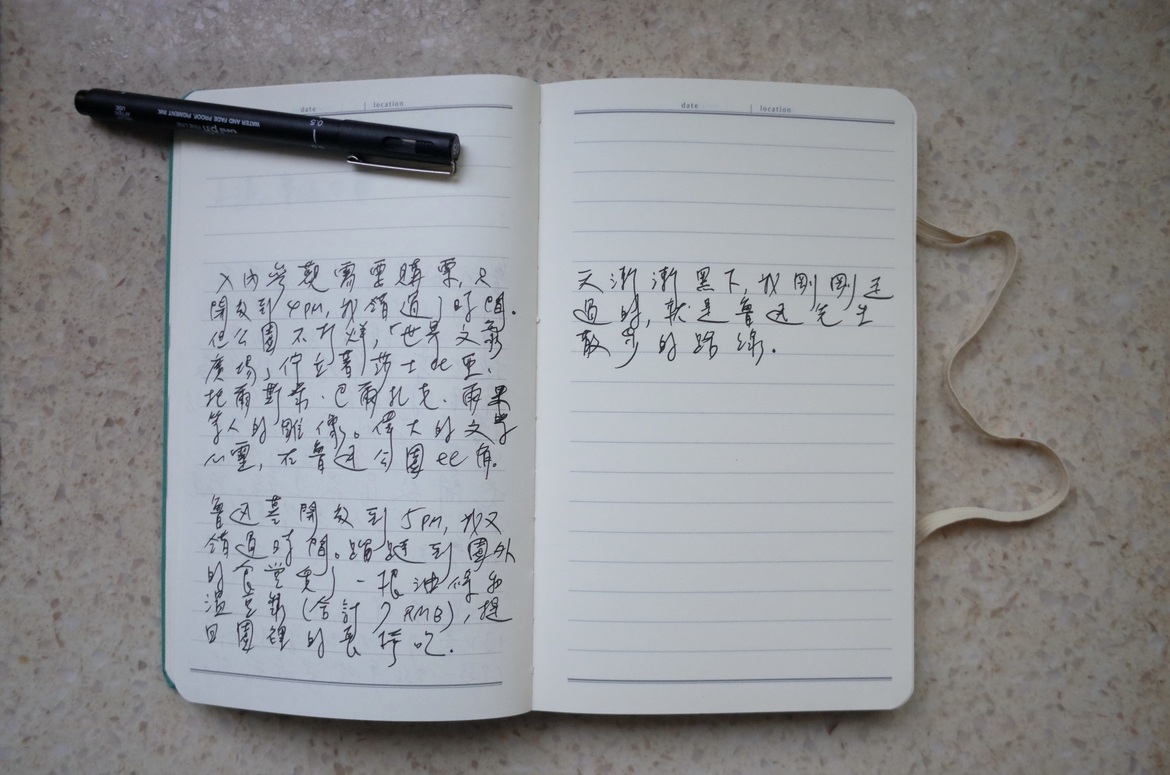 date location
入內參觀需要購票,只
開放到4pm,我錯過了時間.
但公園不打烊,「世界文豪
廣場」佇立著莎士比亞.
托爾斯泰.巴爾扎克.雨果
等人的雕像。偉大的文學
心靈,在魯迅公園比肩.
魯迅墓開放到5pm,我又
錯過時間。蹓躂到園外
的食堂買了一根油條和
溫豆漿(合計7RMB),提
回園裡的長椅吃.
date location
天漸漸黑下,我剛剛走
過的,就是魯迅先生
散步的路線.
WATER AND FADE PROOF, PIGMENT INK
uni pin FINE LINE
0.5